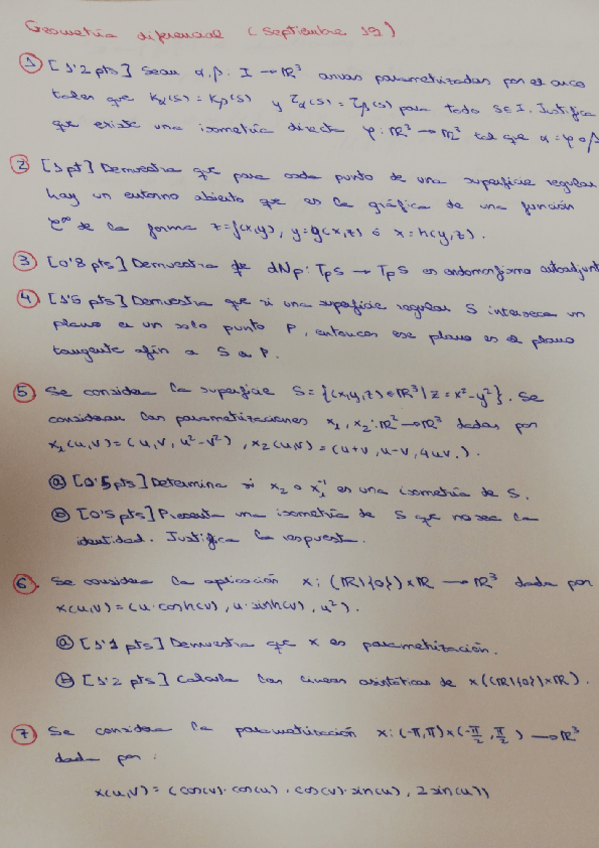 Geometría diferencial (Septiembre 19)
① [1'2 pts] Sean α,β: I → ℝ³ curvas parametrizadas por el arco
tales que Kα(s) = Kβ(s) y τα(s) = τβ(s) para todo s∈I. Justifica
que existe una isometría directa φ: ℝ³ → ℝ³ tal que α = φ∘β
② [1 pt] Demuestra que para cada punto de una superficie regular
hay un entorno abierto que es la gráfica de una función
C^∞ de la forma z=f(x,y), y=g(x,z) ó x=h(y,z).
③ [0'8 pts] Demuestra que dNp: TpS → TpS es endomorfismo autoadjunt
④ [1'5 pts] Demuestra que si una superficie regular S interseca un
plano en un solo punto P, entonces ese plano es el plano
tangente afín a S en P.
⑤ Se considera la superficie S = {(x,y,z)∈ℝ³ | z = x²-y²}. Se
consideran las parametrizaciones x₁, x₂: ℝ² → ℝ³ dadas por
x₁(u,v) = (u,v, u²-v²), x₂(u,v) = (u+v, u-v, 4uv.).
ⓐ [0'5 pts] Determina si x₂ ∘ x₁⁻¹ es una isometría de S.
ⓑ [0'5 pts] Presenta una isometría de S que no sea la
identidad. Justifica la respuesta.
⑥. Se considera la aplicación x: (ℝ\{0})×ℝ → ℝ³ dada por
x(u,v) = (u·cosh(v), u·sinh(v), u²).
ⓐ [1'1 pts] Demuestra que x es parametrización.
ⓑ [1'2 pts] Calcula las líneas asintóticas de x((ℝ\{0})×ℝ).
⑦ Se considera la parametrización x: (-π,π)×(-π/2, π/2) → ℝ³
dada por:
x(u,v) = (cos(v)·cos(u), cos(v)·sin(u), 2sin(u))